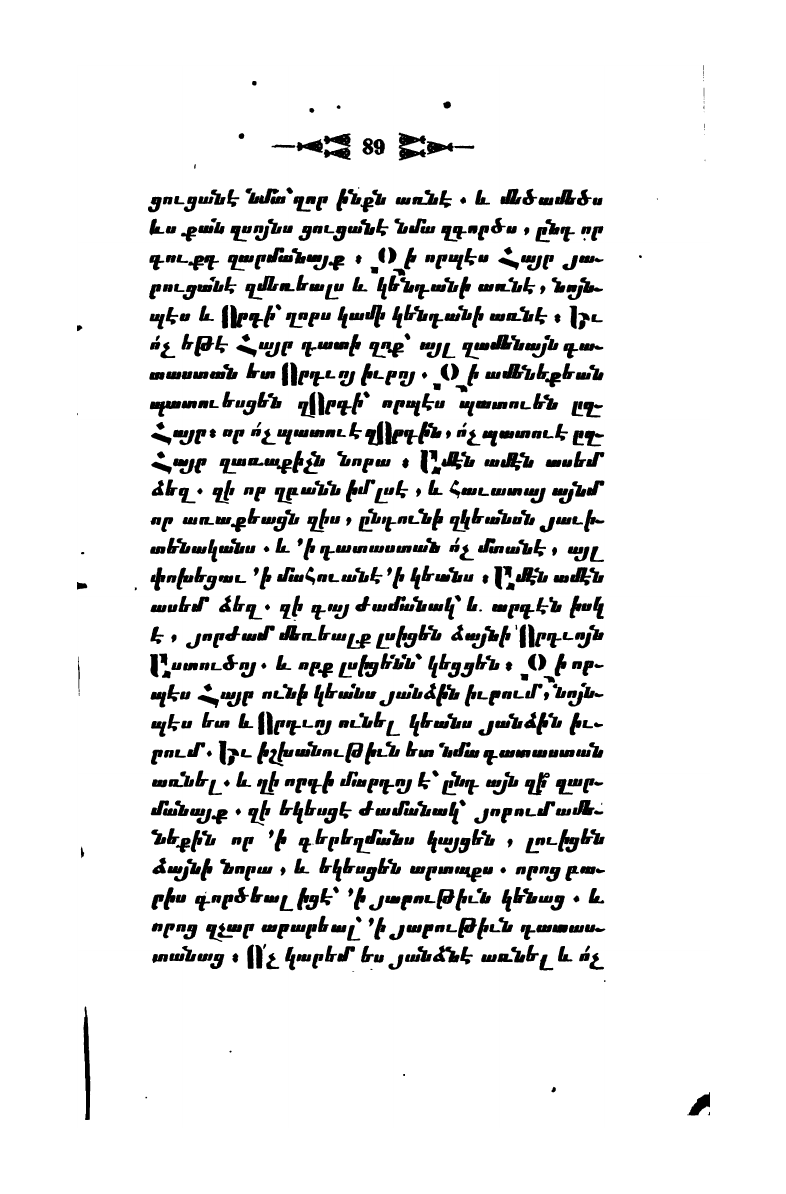 89
ցուցանէ նմա՝ զոր ինքն առնէ . և մեծամեծս
ևս քան զսոյնս ցուցանէ նմա զգործս , ընդ որ
դուքդ զարմանայք ։ Զի որպէս Հայր յա֊
րուցանէ զմեռեալս և կենդանի առնէ , նոյն֊
պէս և Որդի՝ զորս կամի կենդանի առնէ ։ Եւ
ո՛չ եթէ Հայր դատի զոք՝ այլ զամենայն դա֊
տաստան ետ Որդւոյ իւրոյ . Զի ամենեքեան
պատուեսցեն զՈրդի՝ որպէս պատուեն ըզ֊
Հայր ։ որ ո՛չ պատուէ զՈրդին , ո՛չ պատուէ ըզ֊
Հայր զառաքիչն նորա ։ Ամէն ամէն ասեմ
ձեզ . զի որ զբանն իմ լսէ , և հաւատայ այնմ
որ առաքեացն զիս , ընդունի զկեանսն յաւի֊
տենականս . և ՚ի դատաստան ո՛չ մտանէ , այլ
փոխեցաւ ՚ի մահուանէ ՚ի կեանս ։ Ամէն ամէն
ասեմ ձեզ . զի գայ ժամանակ՝ և արդէն իսկ
է , յորժամ մեռեալք լսիցեն ձայնի Որդւոյն
Աստուծոյ . և որք լսիցենն՝ կեցցեն ։ Զի որ֊
պէս Հայր ունի կեանս յանձին իւրում , նոյն֊
պէս ետ և Որդւոյ ունել կեանս յանձին իւ֊
րում . Եւ իշխանութիւն ետ նմա դատաստան
առնել . և զի որդի մարդոյ է՝ ընդ այն զի՞ զար֊
մանայք . զի եկեսցէ ժամանակ՝ յորում ամե֊
նեքին որ ՚ի գերեզմանս կայցեն , լուիցեն
ձայնի նորա , և եկեսցեն արտաքս . որոց բա֊
րիս գործեալ իցէ՝ ՚ի յարութիւն կենաց . և
որոց զչար արարեալ՝ ՚ի յարութիւն դատաս֊
տանաց ։ Ո՛չ կարեմ ես յանձնէ առնել և ո՛չ